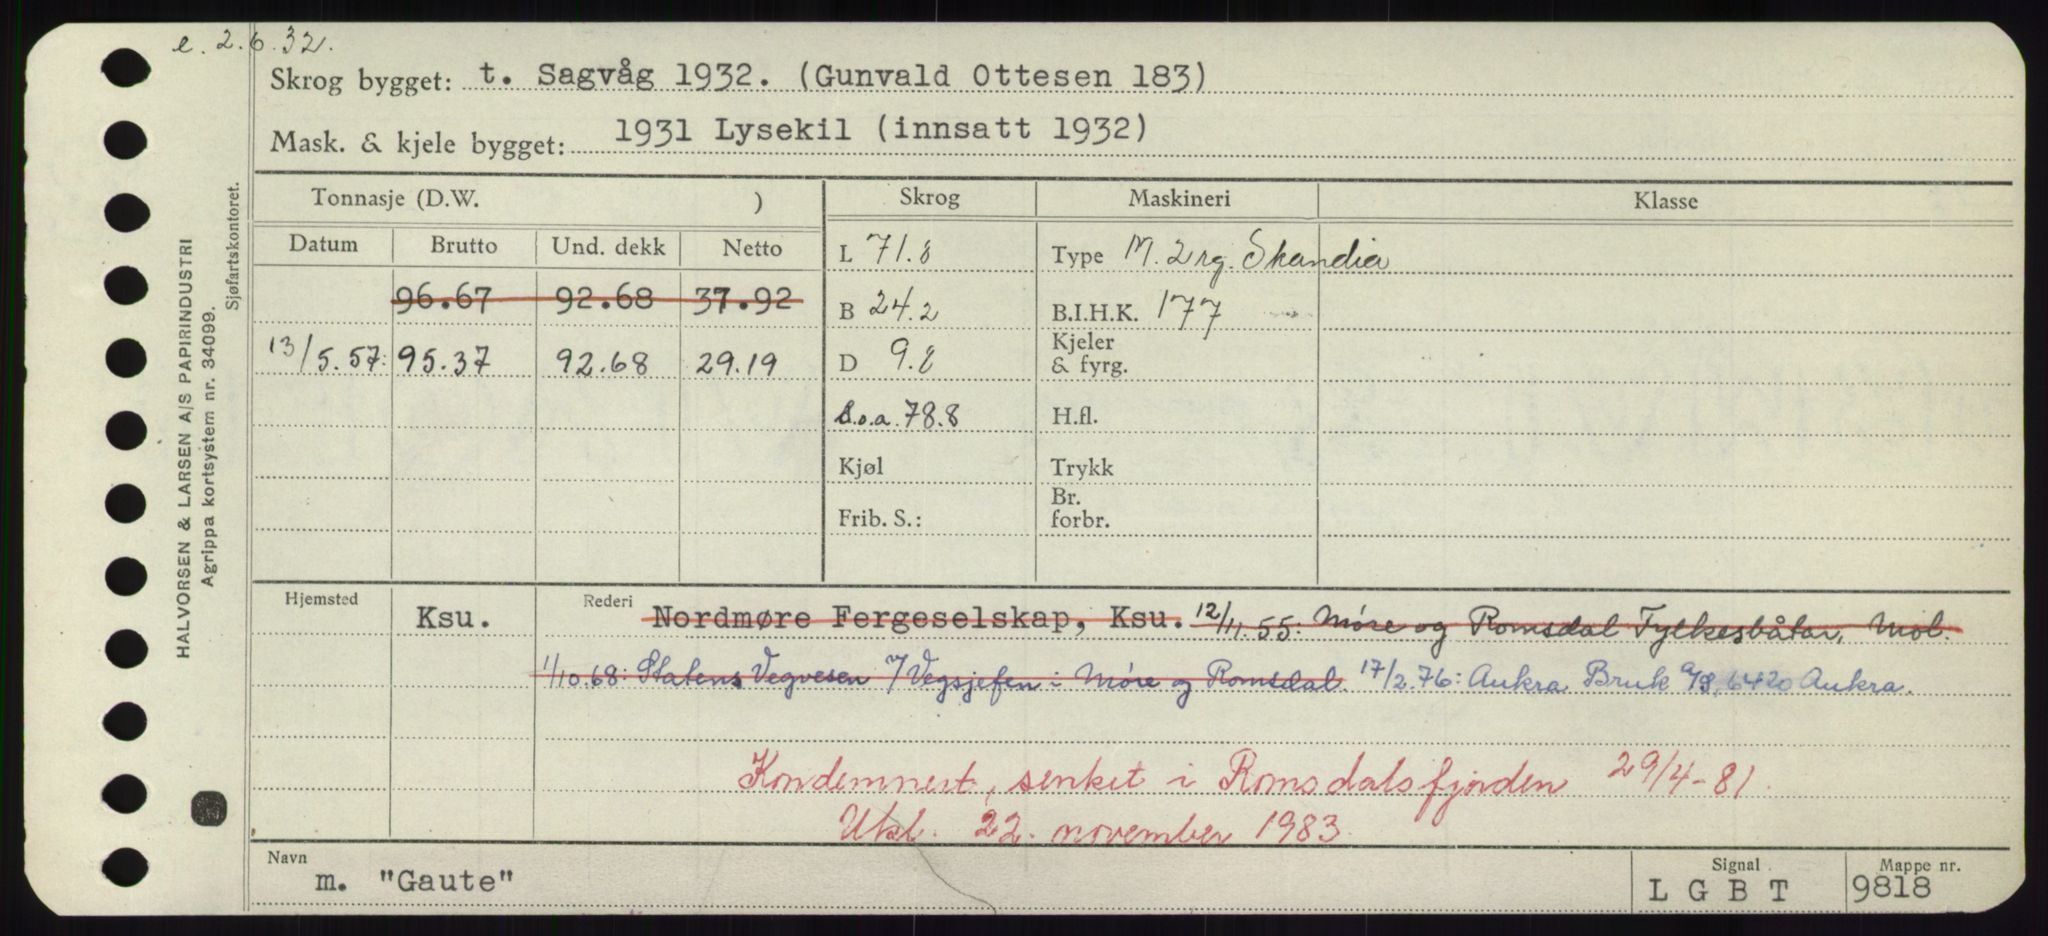 e. 2.6.32.
Skrog bygget: t. Sagvåg 1932. (Gunvald Ottesen 183)
Mask. & kjele bygget: 1931 Lysekil (innsatt 1932)
HALVORSEN & LARSEN A/S PAPIRINDUSTRI
Agrippa kortsystem nr. 34099.
Sjøfartskontoret.
Tonnasje (D.W. ) Skrog Maskineri Klasse
Datum Brutto Und. dekk Netto L 71.8 Type M. 2 rg. Skandia
96.67 92.68 37.92 B 24.2 B.I.H.K. 177
13/5.57: 95.37 92.68 29.19 D 9.8 Kjeler & fyrg.
L.o.a. 78.8 H.fl.
Kjøl Trykk
Frib. S.: Br. forbr.
Hjemsted Ksu. Rederi Nordmøre Fergeselskap, Ksu. 12/11.55: Møre og Romsdal Fylkesbåtar, Mol.
1/10.68: Statens Vegvesen v/Vegsjefen i Møre og Romsdal. 17/2.76: Aukra Bruk A/S, 6420 Aukra.
Kondemnert, senket i Romsdalsfjorden 29/4-81.
Utkl. 22. november 1983
Navn Signal Mappe nr.
m. "Gaute" L G B T 9818